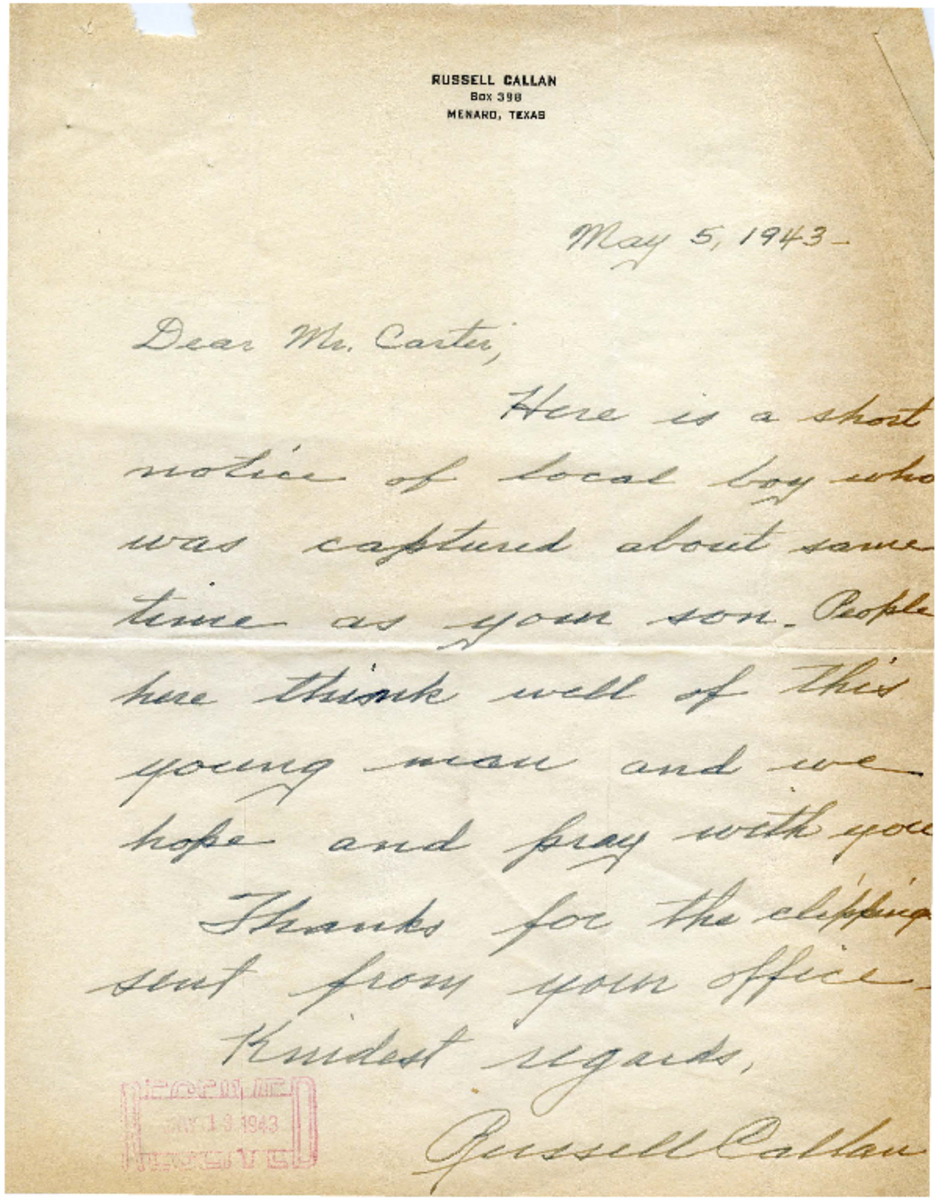 RUSSELL CALLAN
BOX 398
MENARD, TEXAS
May 5, 1943-
Dear Mr. Carter,
Here is a short
notice of local boy who
was captured about same
time as your son. People
here think well of this
young man and we
hope and pray with you
Thanks for the clipping
sent from your office.
Kindest regards,
Russell Callan
RECEIVED
MAY 13 1943